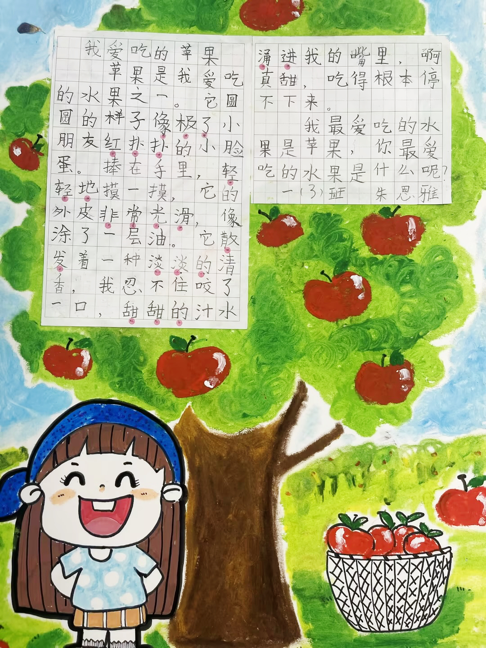 我爱吃的苹果
苹果是我爱吃
的水果之一。它圆
圆的样子像极了小
朋友红扑扑的小脸
蛋。捧在手里，轻
轻地摸一摸，它的
外皮非常光滑，像
涂了一层油。它散
发着一种淡淡的清
香，我忍不住咬了
一口，甜甜的汁水
涌进我的嘴里，啊
真甜，吃得根本停
不下来。
我最爱吃的水
果是苹果，你最爱
吃的水果是什么呢？
一（3）班 朱恩雅